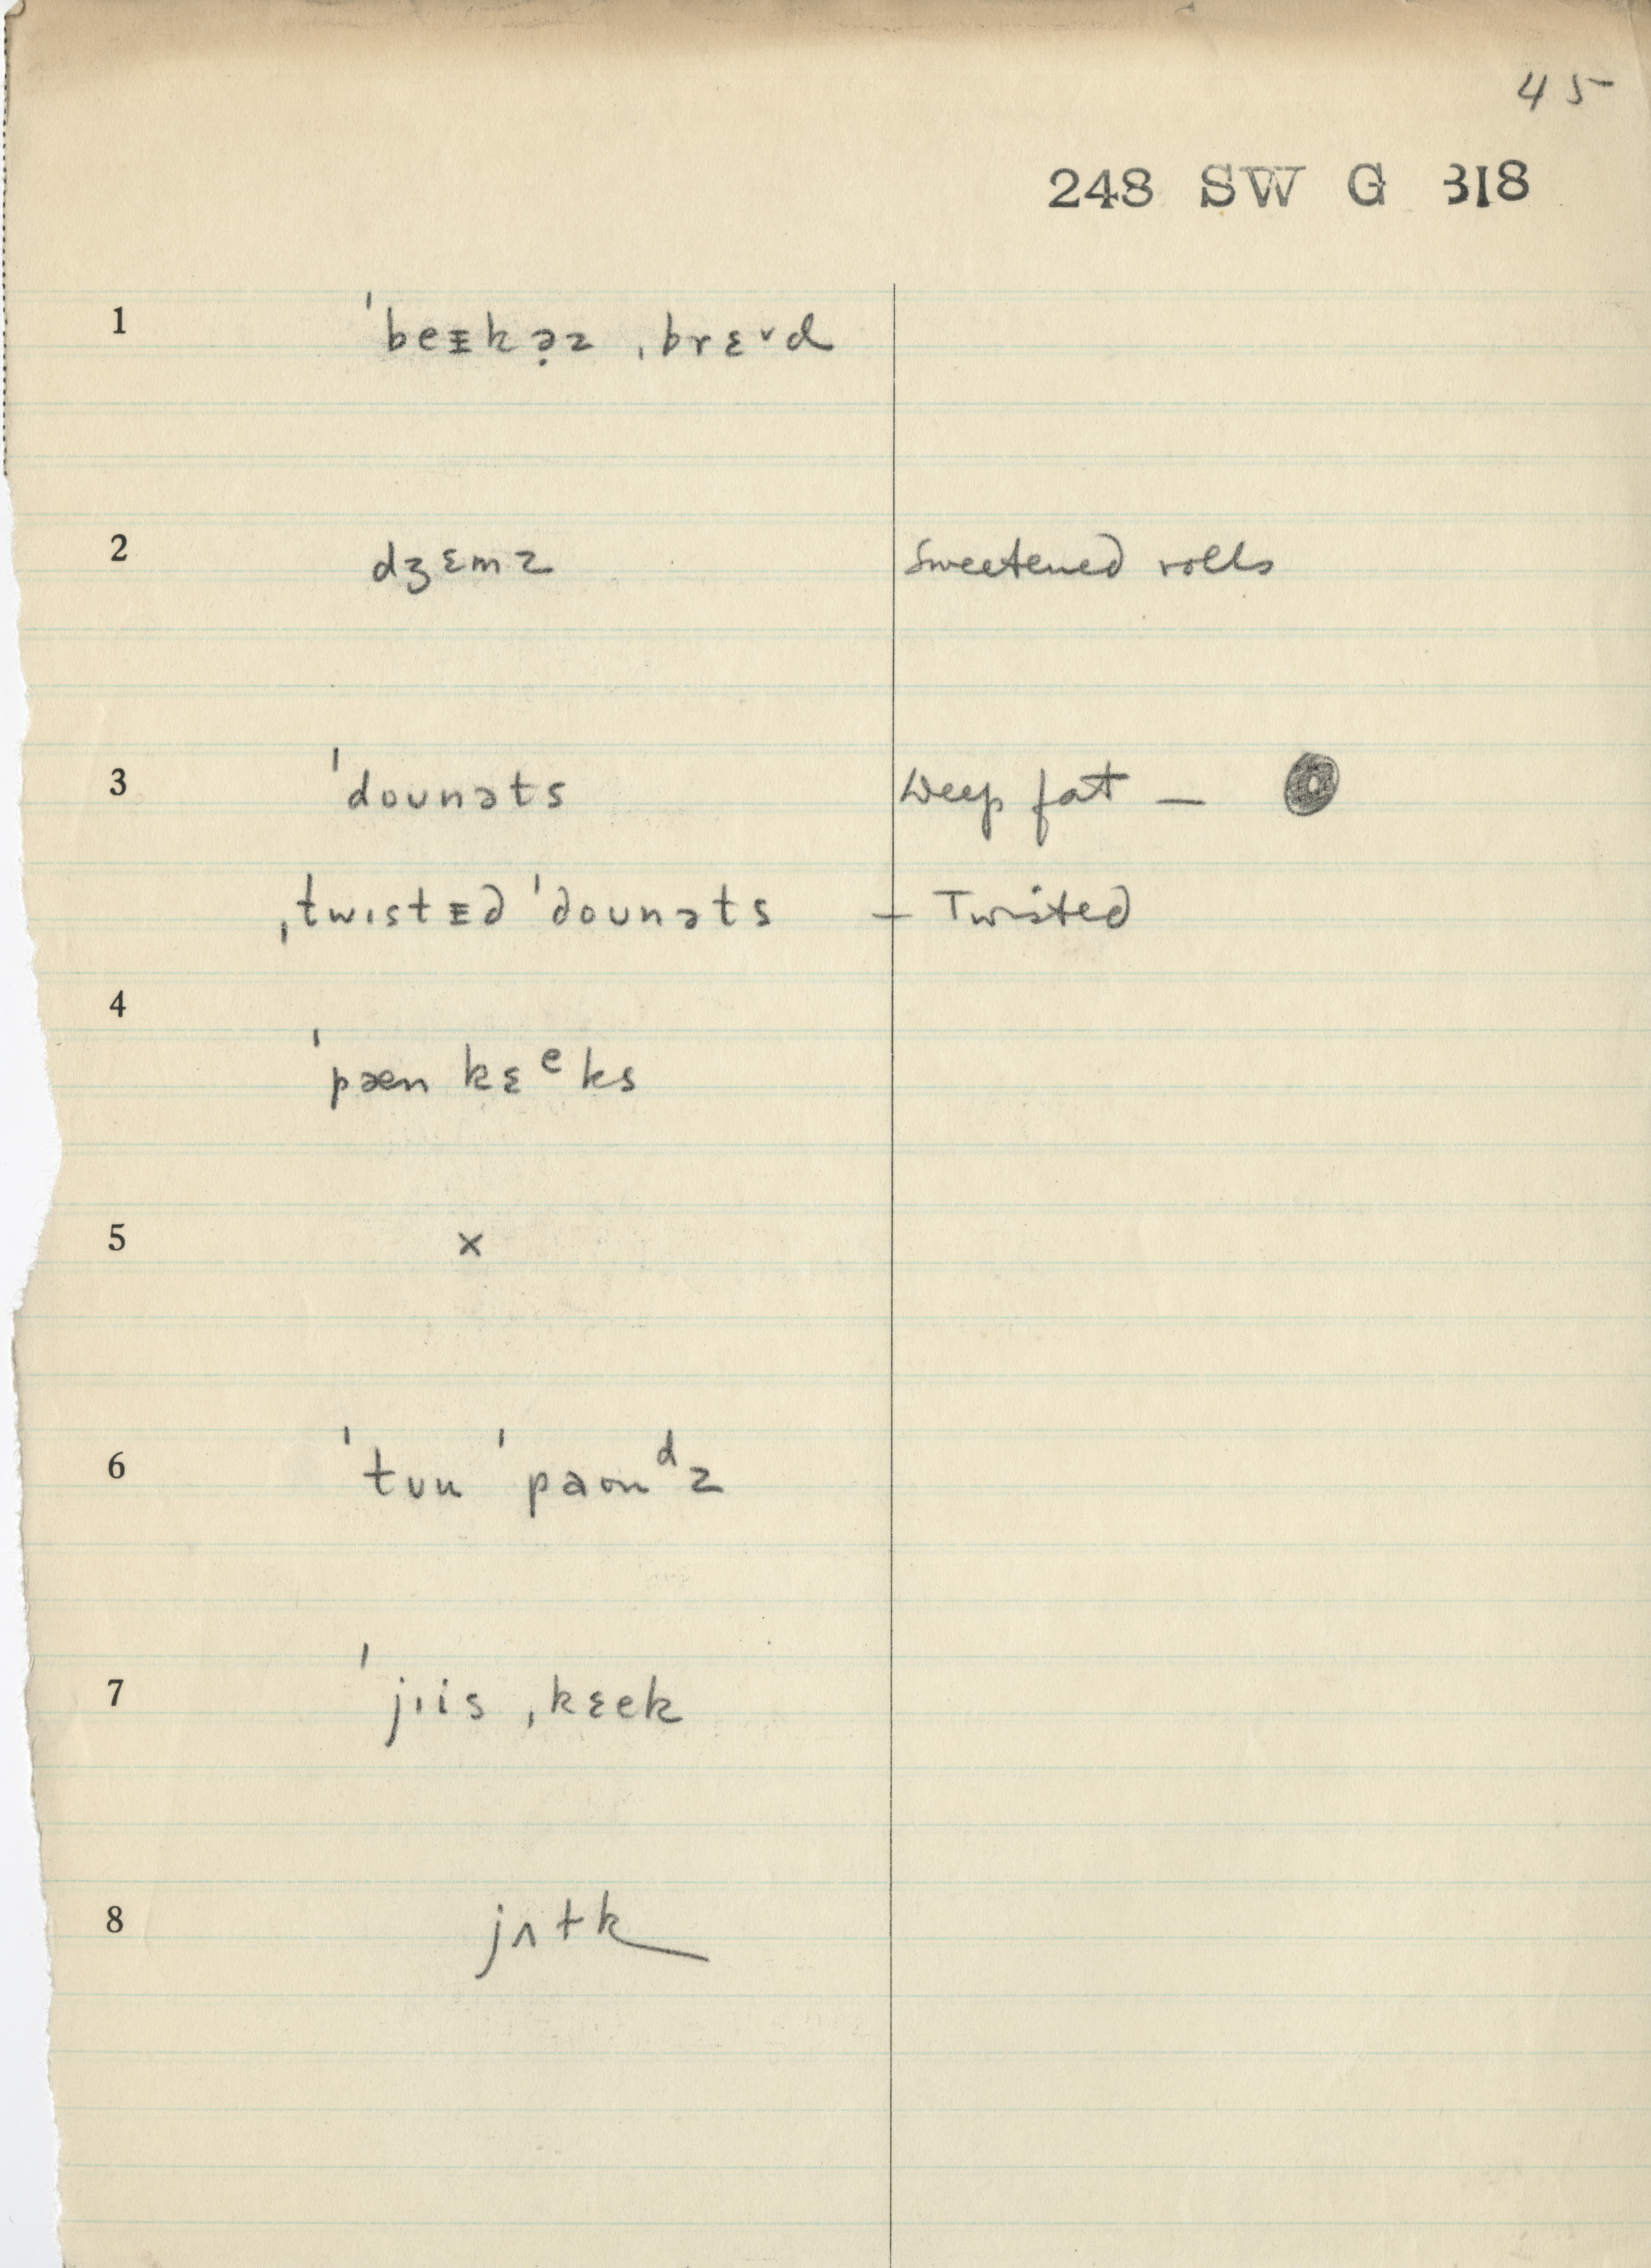 45
248 SW G 318
1 ˈbeᵻkə̣z ˌbrɛ˅d
2 dʒɛmz Sweetened rolls
3 ˈdounəts Deep fat —
ˌtwɪstᵻd ˈdounəts — Twisted
4
ˈpæn kɛᵉks
5 x
6 ˈtʊu ˈpaonᵈz
7 ˈjɪis ˌkɛek
8 jʌɫk